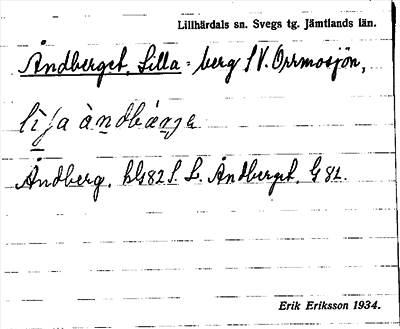 Lillhärdals sn. Svegs tg. Jämtlands län.
Åndberget, Lilla = berg S V. Orrmosjön,
Åndberg, hG82 S. L. Åndberget, G 82.
Erik Eriksson 1934.